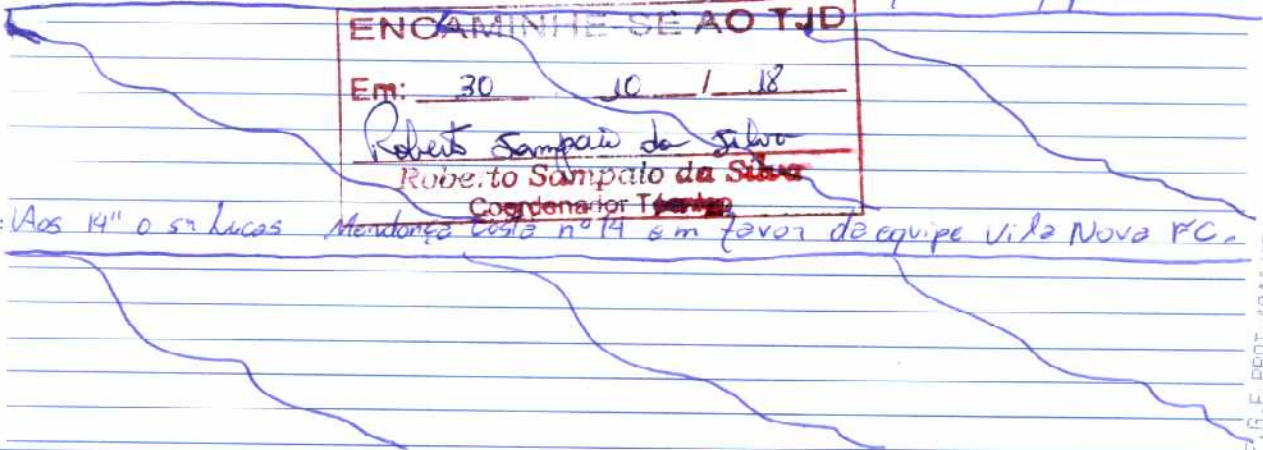 ENCAMINHE-SE AO TJD
Em: 30 10 / 18
Roberto Sampaio da Silva
Roberto Sampaio da Silva
Coordenador
: Aos 14" o sr Lucas Mendonça Costa nº 14 em favor da equipe Vila Nova FC.